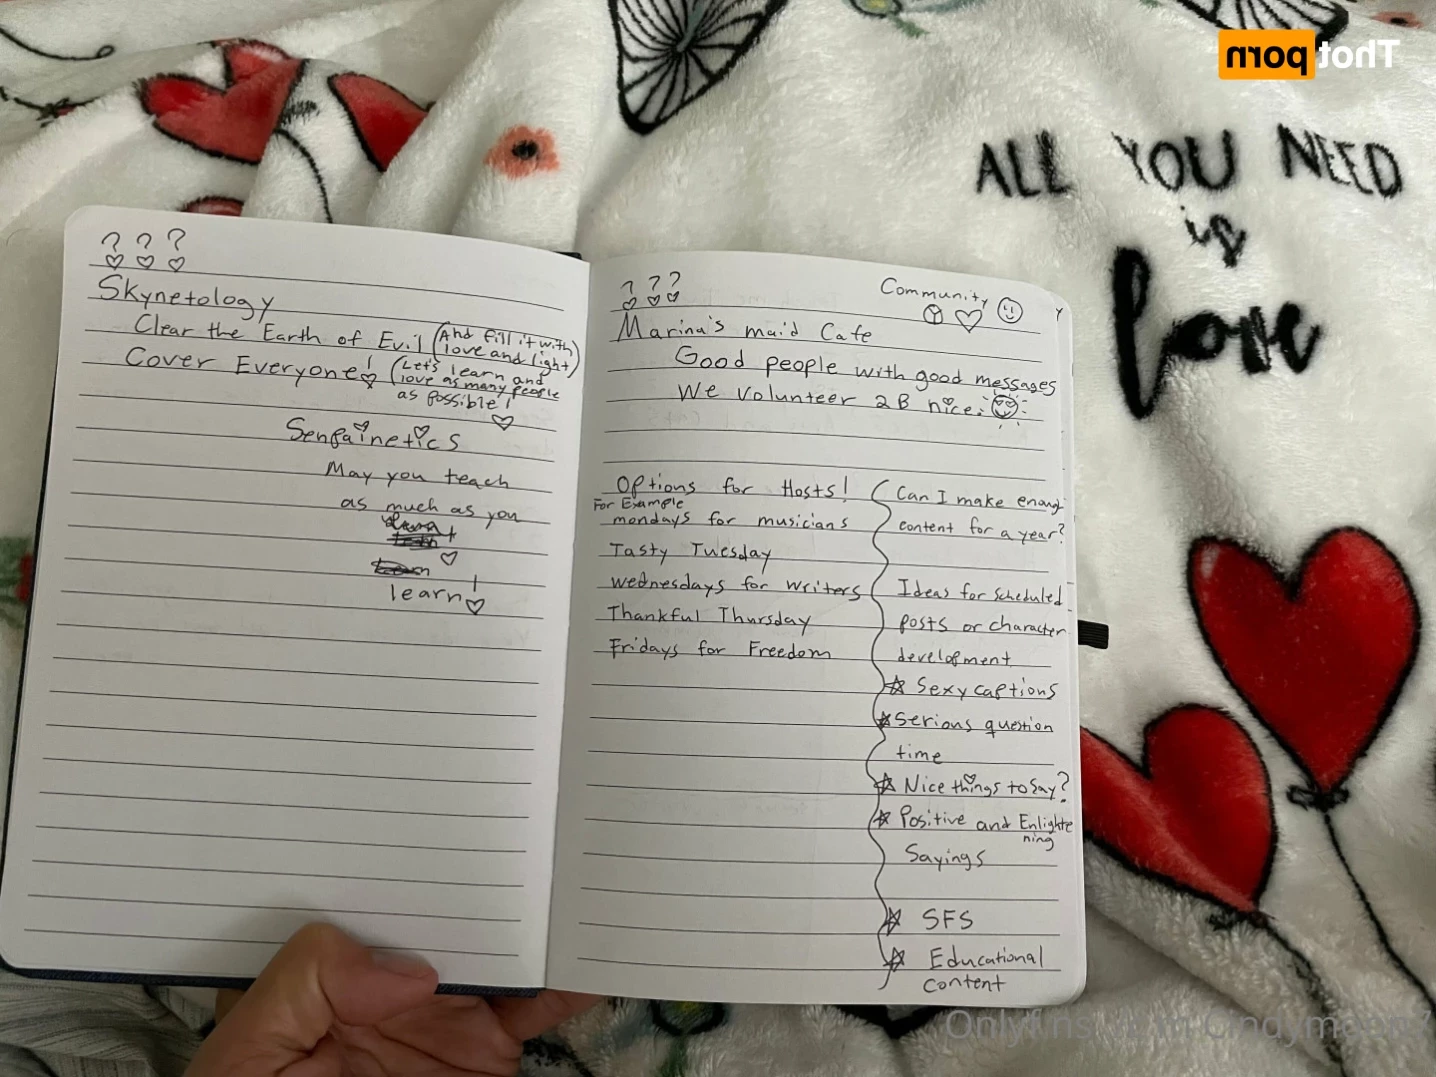 ? ? ?
Skynetology
Clear the Earth of Evil (And fill it with
love and light)
Cover Everyone! (Let's learn and
love as many people
as possible!
Senpainetics
May you teach
as much as you
learn!
? ? ?
Community
Marina's maid Cafe
Good people with good messages
We volunteer 2B nice.
Options for Hosts!
For Example
mondays for musicians
Tasty Tuesday
wednesdays for writers
Thankful Thursday
Fridays for Freedom
Can I make enough
content for a year?
Ideas for scheduled
posts or character
development
Sexy captions
Serious question
time
Nice things to say?
Positive and Enlighte
ning
Sayings
SFS
Educational
content
ALL YOU NEED
is
love
Thot porn